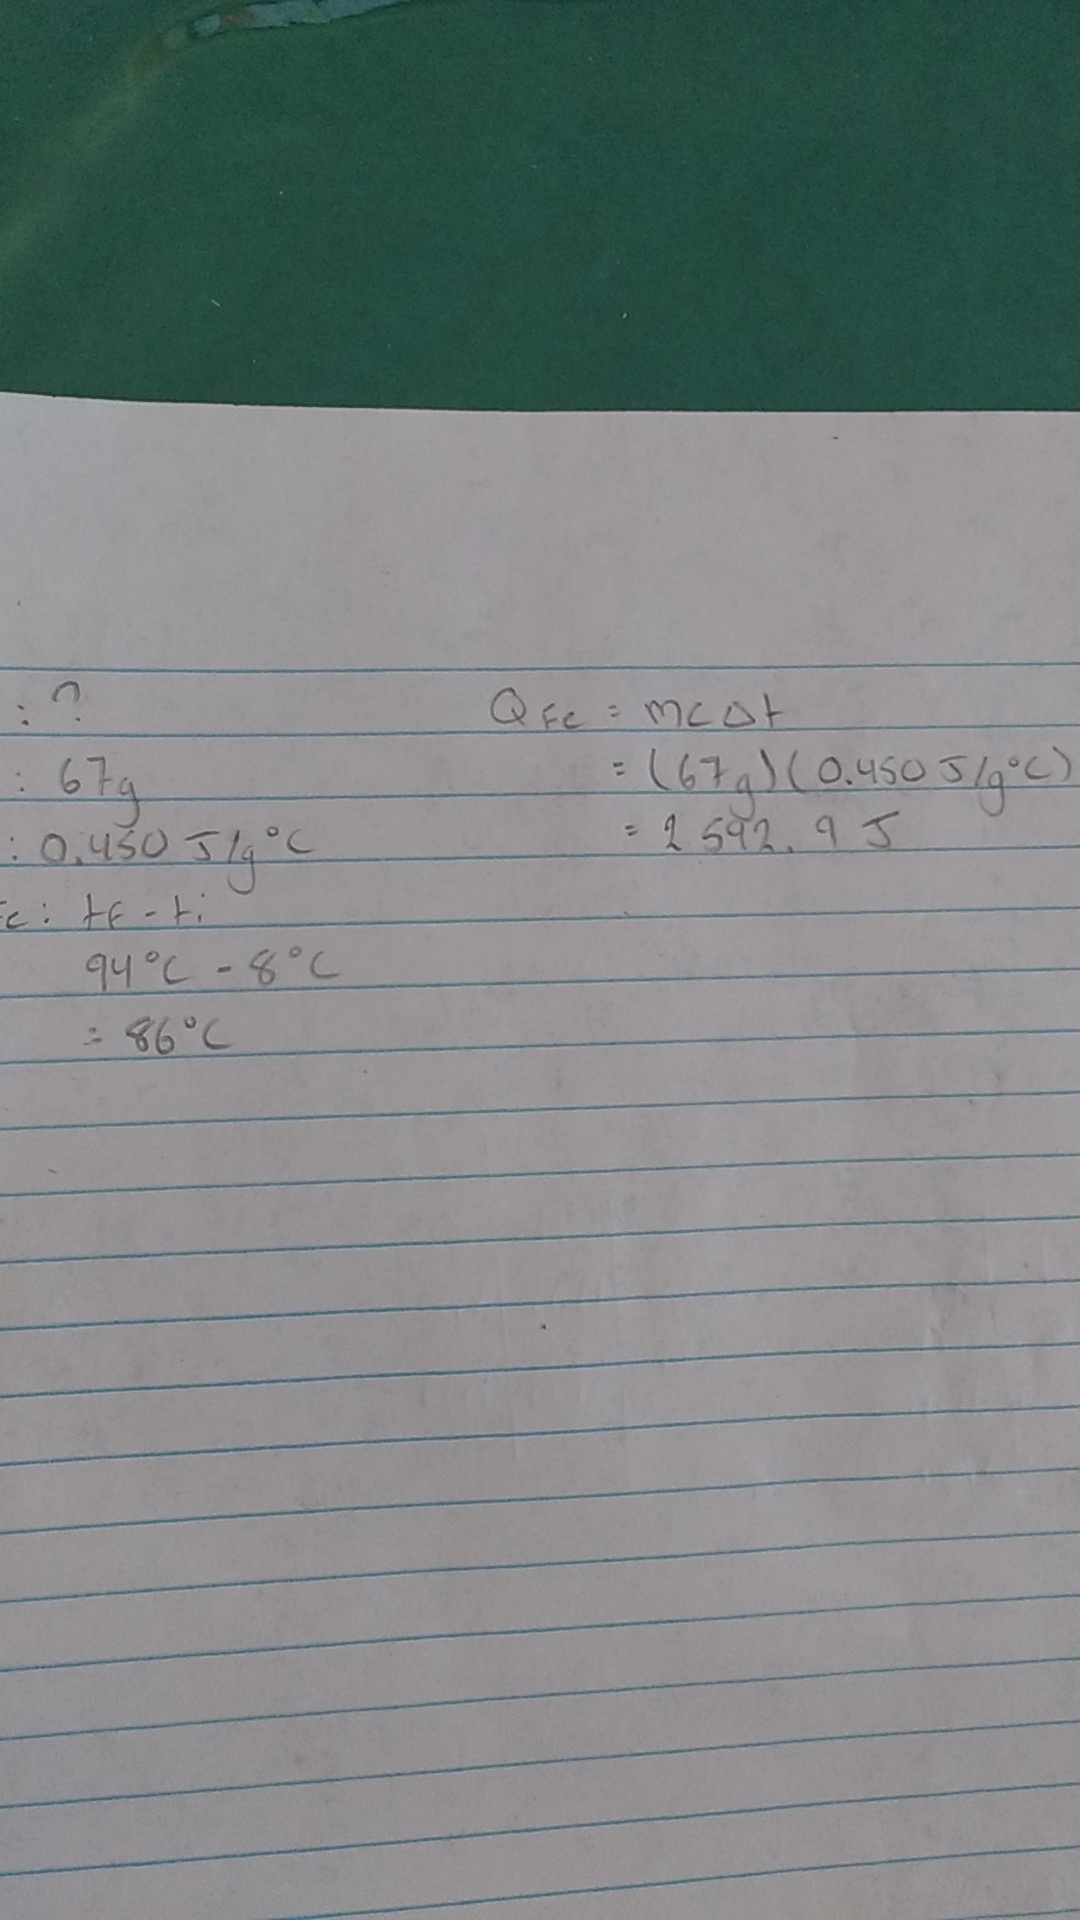 : ?
: 67g
: 0.450 J/g°C
e: tf - ti
94°C - 8°C
= 86°C
QFe = mcΔt
= (67g)(0.450 J/g°C)
= 2 592.9 J